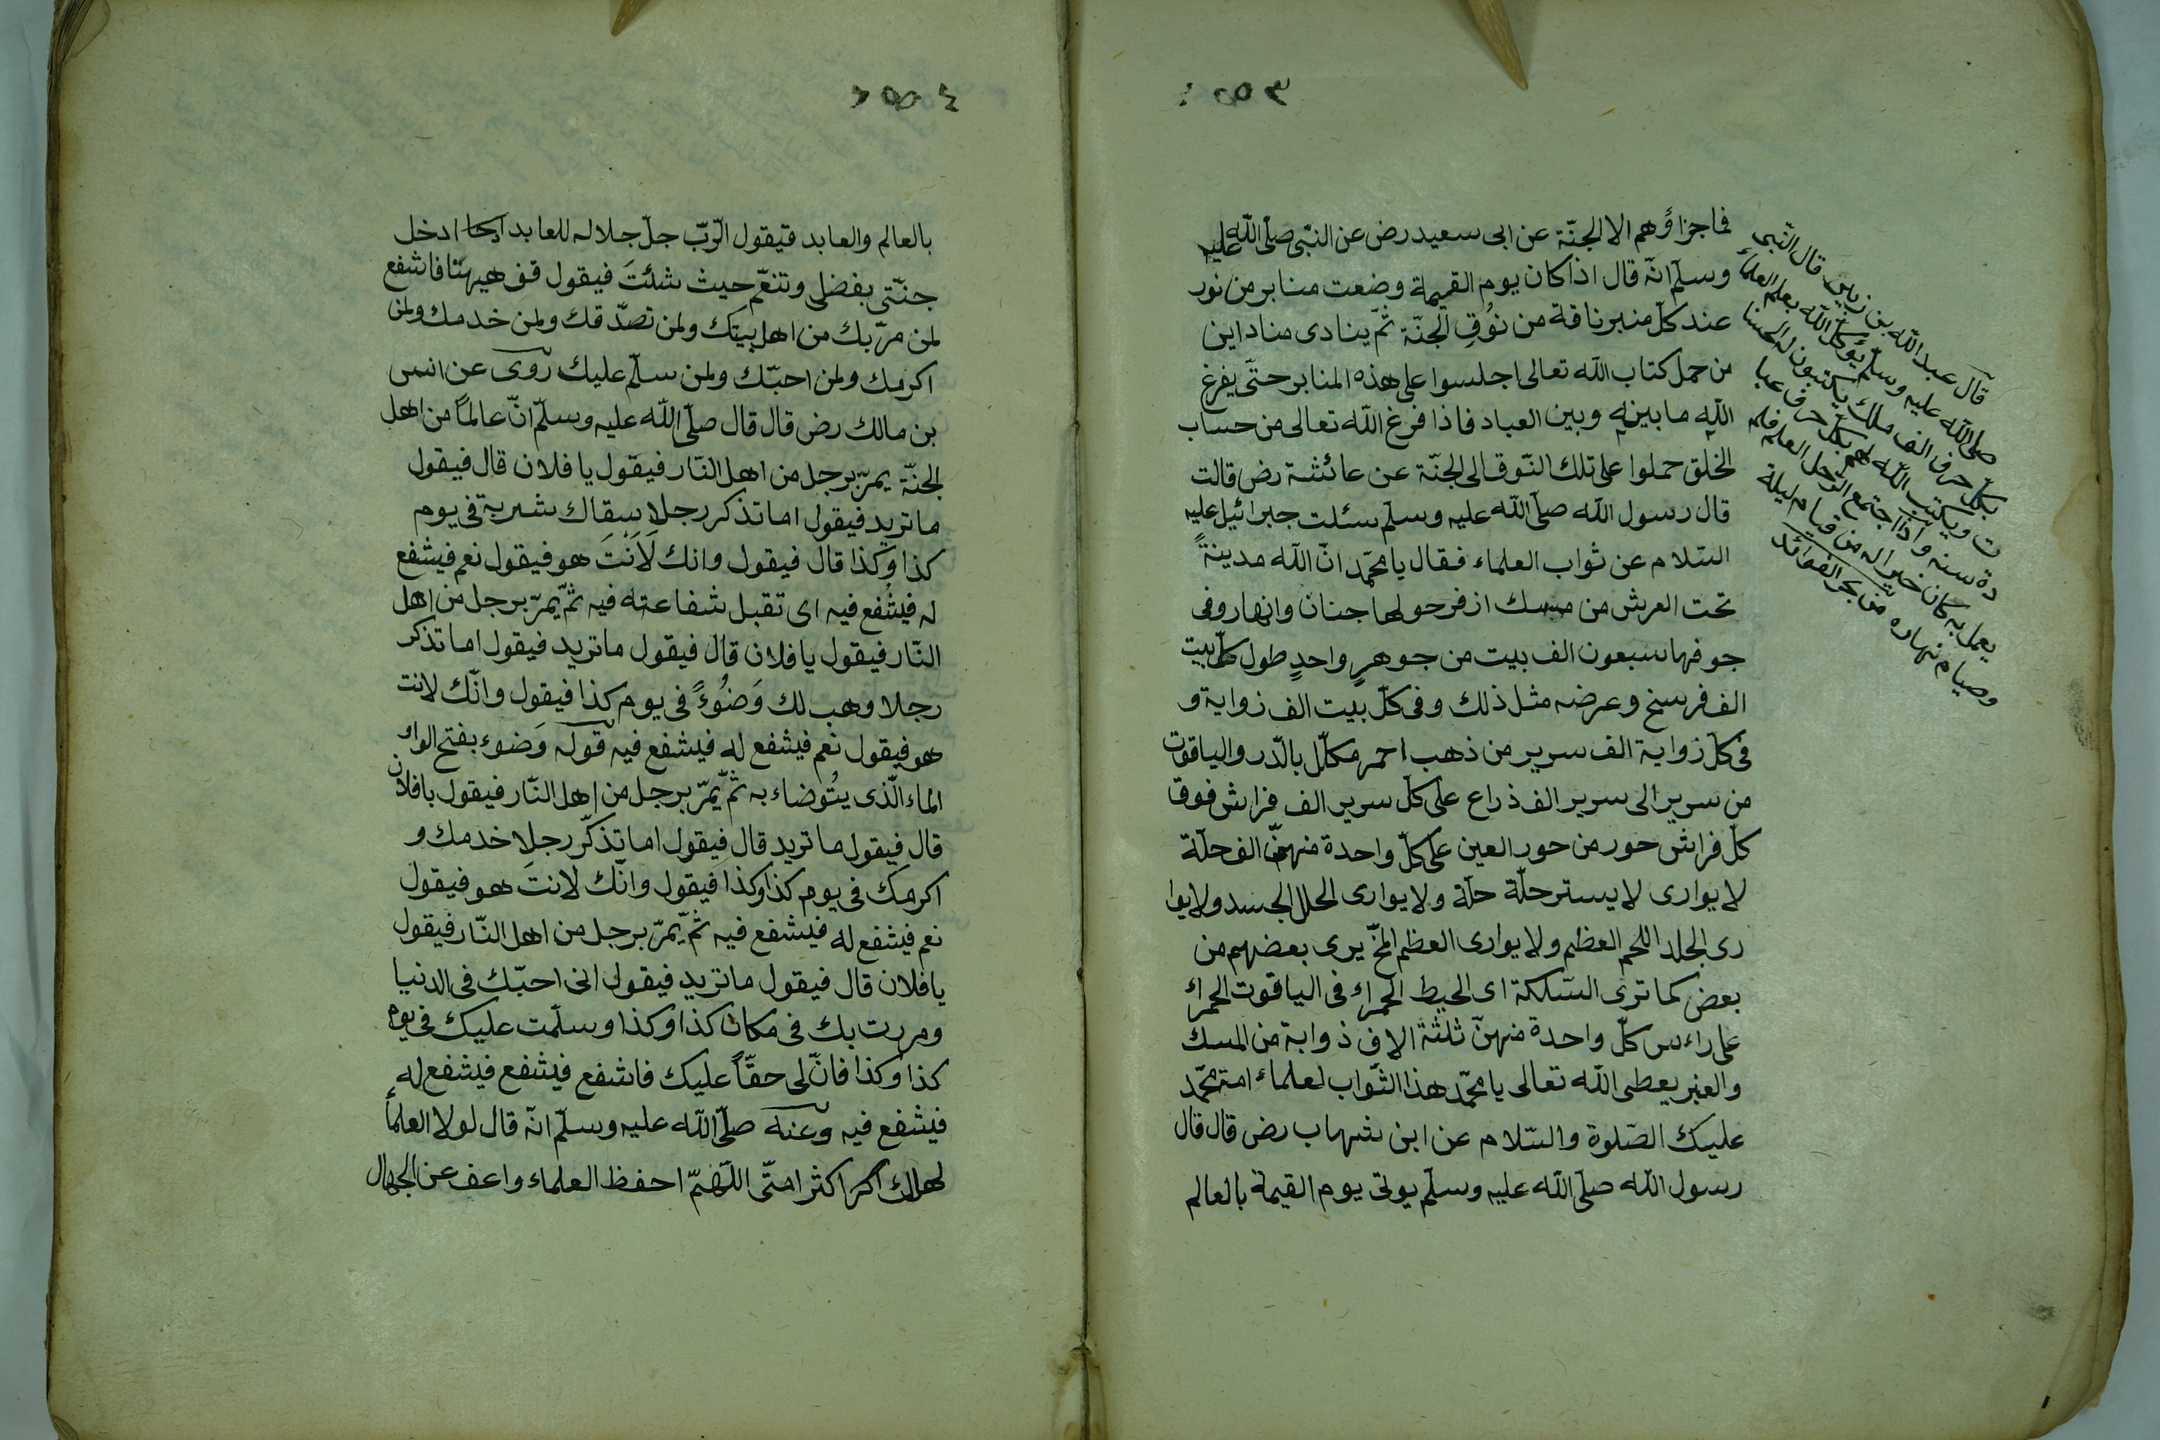 ٣٥٥
فما جزاؤهم الا الجنّة عن ابى سعيد رض عن النّبى صلّى اللّه عليه
وسلّم انّه قال اذا كان يوم القيمة وضعت منابر من نور
عند كلّ منبر ناقة من نُوُقِ الجنّة ثمّ ينادى مناد اين
من حمل كتاب اللّه تعالى اجلسوا على هذه المنابر حتّى يفرغ
اللّه ما بينه وبين العباد فاذا فرغ اللّه تعالى من حساب
الخلق حملوا على تلك النّوق الى الجنّة عن عائشة رض قالت
قال رسول اللّه صلّى اللّه عليه وسلّم سئلت جبرائيل عليه
السّلام عن ثواب العلماء فقال يا محمّد انّ اللّه مدينةً
تحت العرش من مسك ازفر حولها جنان وانهار وفى
جوفها سبعون الف بيت من جوهرٍ واحدٍ طول كلّ بيت
الف فرسخ وعرضه مثل ذلك وفى كلّ بيت الف زواية و
فى كلّ زواية الف سرير من ذهب احمر مكلّل بالدّر والياقوت
من سرير الى سرير الف ذراع على كلّ سرير الف فراش فوق
كلّ فراش حور من حور العين على كلّ واحدة منهنّ الف حلّة
لا يوارى لا يستر حلّة حلّة ولا يوارى الحلل الجسد ولا يوا
رى الجلد اللحم العظم ولا يوارى العظم المخّ يرى بعضهم من
بعض كما ترى السّلكة اى الخيط الحمراء فى الياقوت الحمراء
على راءس كلّ واحدة منهنّ ثلثة الاف ذوابة من المسك
والعنبر يعطى اللّه تعالى يا محمّد هذا الثّواب لعلماء امته محمّد
عليك الصّلوة والسّلام عن ابن شهاب رض قال قال
رسول اللّه صلّى اللّه عليه وسلّم يوتى يوم القيمة بالعالم
قال عبد اللّه بن زيد قال النّبى
صلى اللّه عليه وسلّم يؤكّل اللّه بعلم العلماء
بكلّ حرف الف ملك يكتبون له الحسنا
ت ويكتب اللّه لهم بكلّ حرف عبا
دة سنه واذا اجتمع الرّجل العلم فلم
يعمل به كان خيرا له من قيام ليلة
وصيام نهاره من بحر الفوائد
٤
بالعالم والعابد فيقول الرّبّ جلّ جلاله للعابد ادخل
جنّتى بفضلى وتنعّم حيث شئتَ فيقول قف هيهنا فاشفع
لمن مرّ بك من اهل بيتك ولمن تصدّقك ولمن خدمك ولمن
اكرمك ولمن احبّك ولمن سلّم عليك روى عن انس
بن مالك رض قال قال صلّى اللّه عليه وسلّم انّ عالماً من اهل
الجنّة يمرّ برجل من اهل النّار فيقول يا فلان قال فيقول
ما تريد فيقول اما تذكر رجلا سقاك شربة فى يوم
كذا وكذا قال فيقول وانك لَاَنْتَ هو فيقول نعم فيشفع
له فيشفع فيه اى تقبل شفاعته فيه ثمّ يمرّ برجل من اهل
النّار فيقول يا فلان قال فيقول ما تريد فيقول اما تذكر
رجلا وهب لك وَضُوءً فى يوم كذا فيقول وانّك لانت
هو فيقول نعم فيشفع له فيشفع فيه قوله وَضوء بفتح الواو
الماء الّذى يُتوضاء به ثمّ يمرّ برجل من اهل النّار فيقول يا فلان
قال فيقول ما تريد قال فيقول اما تذكّر رجلا خدمك و
اكرمك فى يوم كذا وكذا فيقول وانّك لانتَ هو فيقول
نعم فيشفع له فيشفع فيه ثمّ يمرّ برجل من اهل النّار فيقول
يا فلان قال فيقول ما تريد فيقول انى احبّك فى الدنيا
ومررت بك فى مكان كذا وكذا وسلّمت عليك فى يوم
كذا وكذا فانّ لى حقّاً عليك فاشفع فيشفع فيشفع له
فيشفع فيه وعنه صلّى اللّه عليه وسلّم انّه قال لولا العلماء
لهلك اكثر امتّى اللّهمّ احفظ العلماء واعف عن الجهال